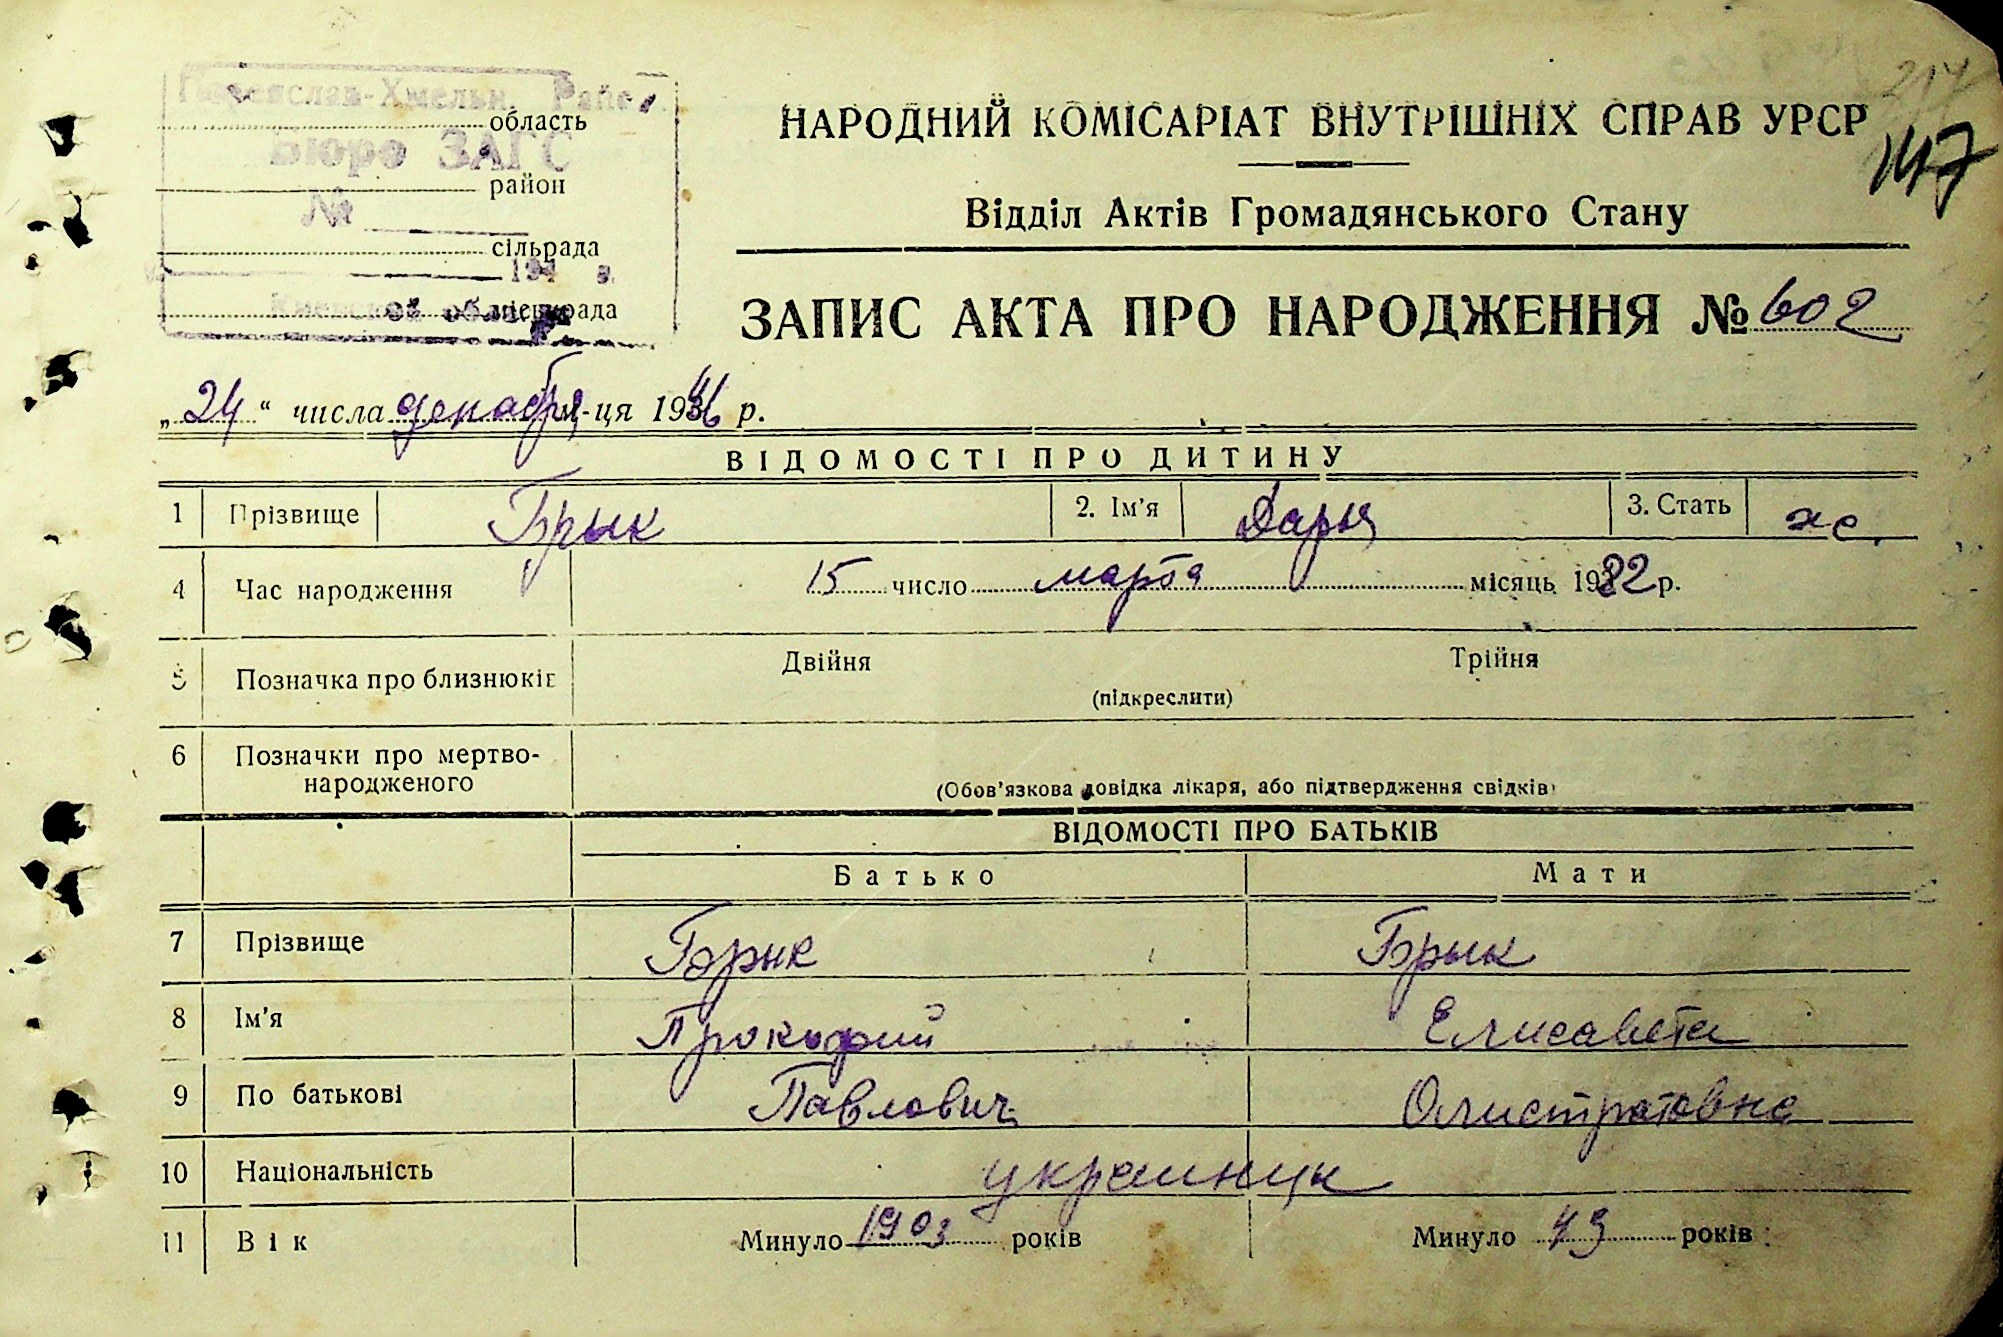 147
область
Бюро ЗАГС
район
№
сільрада
міськрада
НАРОДНИЙ КОМІСАРІАТ ВНУТРІШНІХ СПРАВ УРСР
Відділ Актів Громадянського Стану
ЗАПИС АКТА ПРО НАРОДЖЕННЯ № 602
„24“ числа декабря м-ця 1946 р.
ВІДОМОСТІ ПРО ДИТИНУ
1 Прізвище Брык 2. Ім'я Дарья 3. Стать ж.
4 Час народження 15 число марта місяць 1922 р.
5 Позначка про близнюків Двійня Трійня
(підкреслити)
6 Позначки про мертво-
народженого
(Обов'язкова довідка лікаря, або підтвердження свідків)
ВІДОМОСТІ ПРО БАТЬКІВ
Батько Мати
7 Прізвище Брык Брык
8 Ім'я Прокофий Елисавета
9 По батькові Павлович Олистратовна
10 Національність украинцы
11 Вік Минуло 1903 років Минуло 43 років